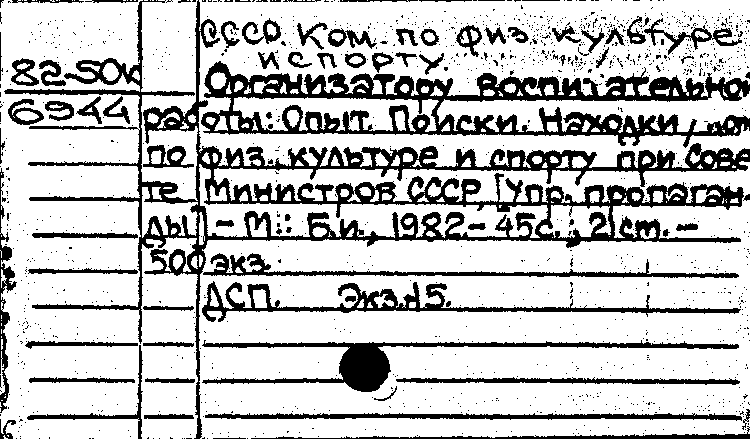 СССР. Ком. по физ. культуре
и спорту.
82-50к
6944
Организатору воспитательной
работы: Опыт. Поиски. Находки /
по физ. культуре и спорту при Сове
те Министров СССР, [Упр. пропаган-
ды]. - М.: Б.и., 1982.- 45с.; 21 ст. -
500 экз.
ДСП. Экз. 15.